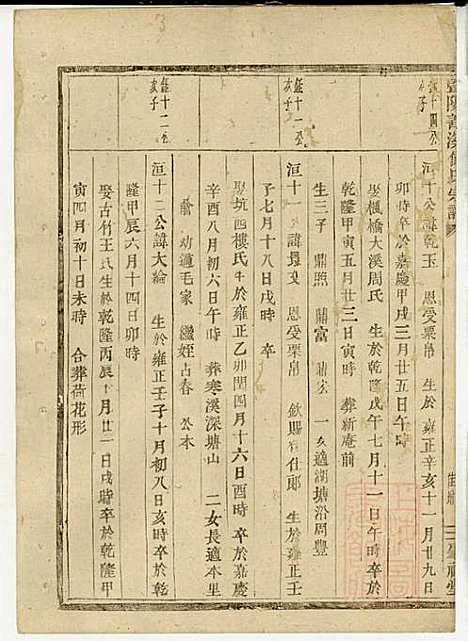 暨陽 溪 氏宗譜
洹十公諱乾玉 恩受粟帛 生於雍正辛亥十一月廿九日
卯時卒於嘉慶甲戌三月廿五日午時
娶楓橋大溪周氏 生於乾隆戊午七月十一日午時卒於
乾隆甲寅五月廿三日寅時 葬新庵前
生三子 鼎照 鼎富 鼎 一女適湖塘沿周豐
洹十一公諱 文 恩受粟帛 欽賜 仕郎 生於雍正壬
子七月十八日戌時 卒
娶坑西樓氏 生於雍正乙卯閏四月十六日酉時 卒於嘉慶
辛酉八月初六日午時 葬寒溪深塘山 二女長適本里
俞 幼適毛家 繼姪占春 公本
洹十二公諱大綸 生於雍正壬子十月初八日亥時 卒於乾
隆甲辰六月十四日卯時
娶古竹王氏 生於乾隆丙辰十月廿一日戌時 卒於乾隆甲
寅四月初十日未時 合葬荷花形
十四公
亥子
十一公
亥子
十二公
亥子